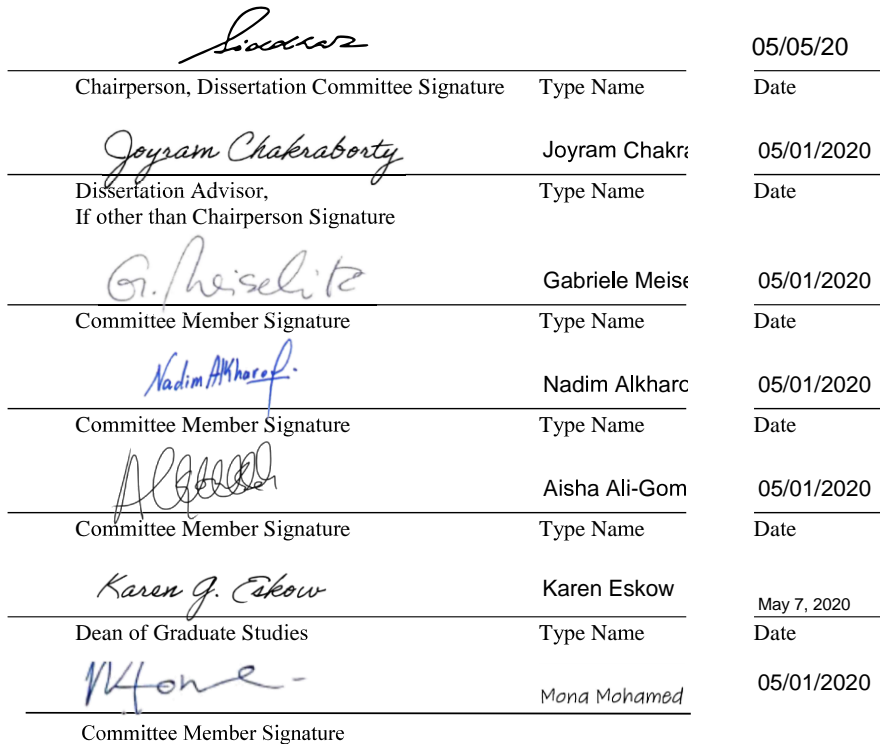 05/05/20
Chairperson, Dissertation Committee Signature Type Name Date
Joyram Chakraborty Joyram Chakra 05/01/2020
Dissertation Advisor, Type Name Date
If other than Chairperson Signature
G. Meiselitz Gabriele Meise 05/01/2020
Committee Member Signature Type Name Date
Nadim AlKharof. Nadim Alkharo 05/01/2020
Committee Member Signature Type Name Date
Aisha Ali-Gom 05/01/2020
Committee Member Signature Type Name Date
Karen G. Eskow Karen Eskow May 7, 2020
Dean of Graduate Studies Type Name Date
Mona Mohamed 05/01/2020
Committee Member Signature